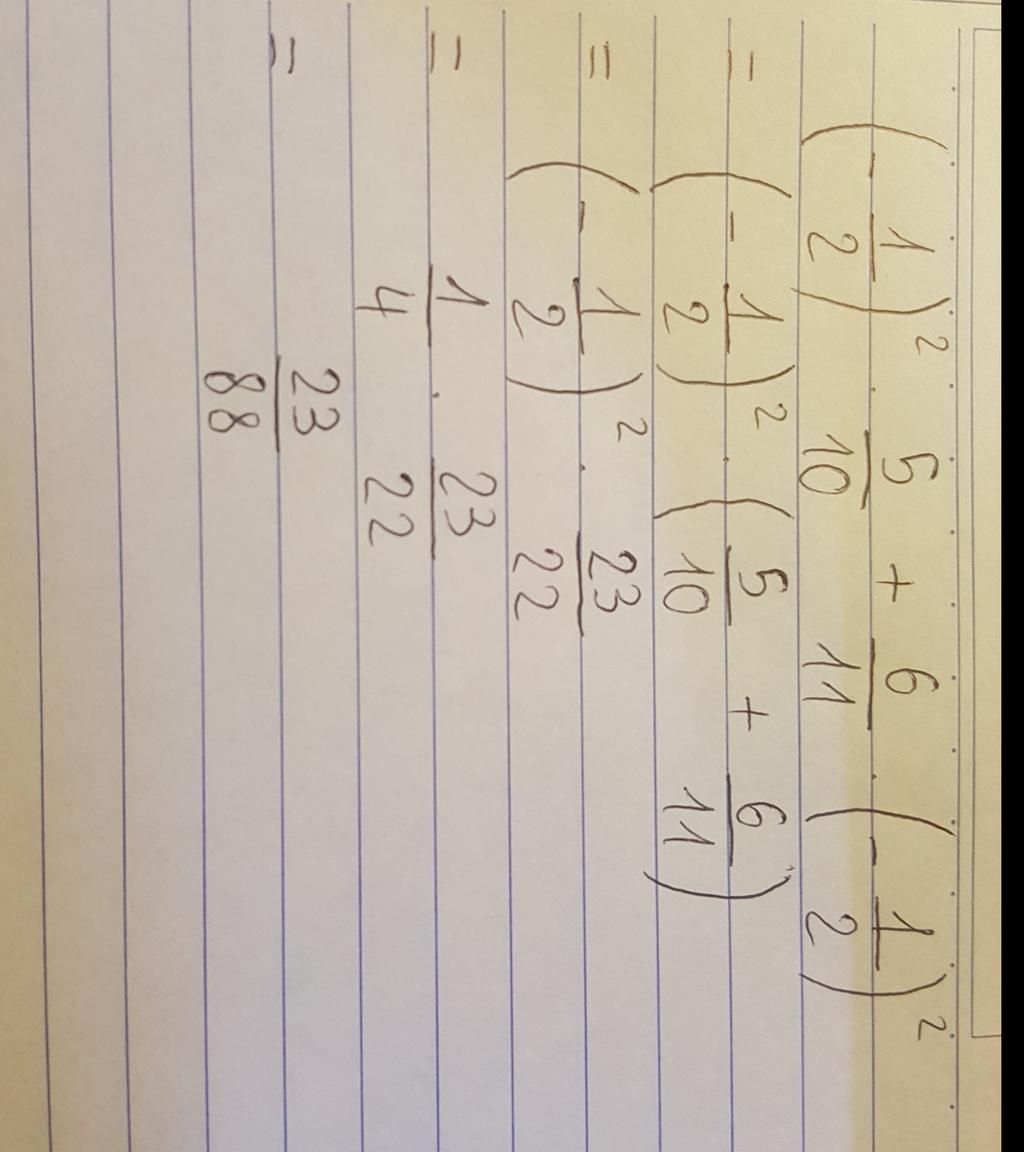 (- 1/2)² · 5/10 + 6/11 · (- 1/2)²
= (- 1/2)² · (5/10 + 6/11)
= (- 1/2)² · 23/22
= 1/4 · 23/22
= 23/88